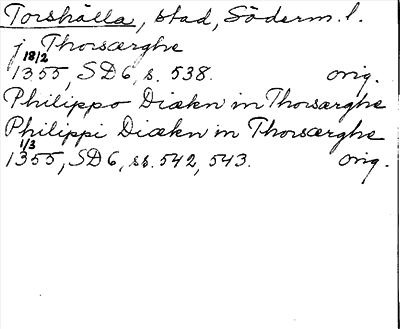 Torshälla, stad, Söderm. l.
j Thorsærghe
18/2
1355, SD6, s. 538. orig.
Philippo Diækn in Thorsærghe
Philippi Diækn in Thorsærghe
1/3
1355, SD6, ss. 542, 543. orig.